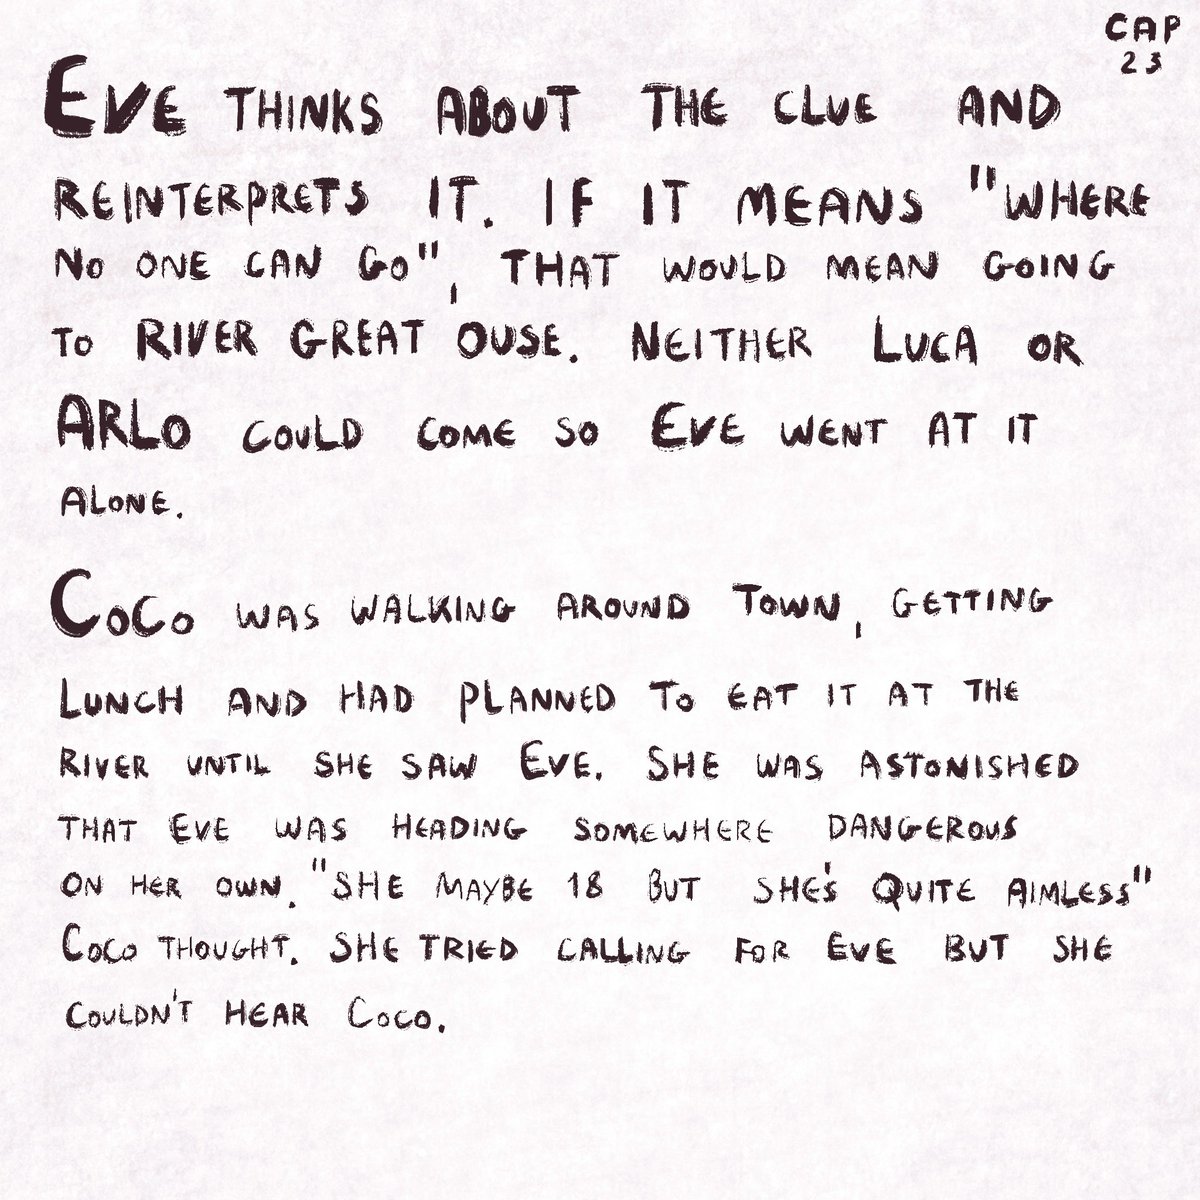 CAP
23
EVE THINKS ABOUT THE CLUE AND
REINTERPRETS IT. IF IT MEANS "WHERE
NO ONE CAN GO", THAT WOULD MEAN GOING
TO RIVER GREAT OUSE. NEITHER LUCA OR
ARLO COULD COME SO EVE WENT AT IT
ALONE.
COCO WAS WALKING AROUND TOWN, GETTING
LUNCH AND HAD PLANNED TO EAT IT AT THE
RIVER UNTIL SHE SAW EVE. SHE WAS ASTONISHED
THAT EVE WAS HEADING SOMEWHERE DANGEROUS
ON HER OWN. "SHE MAYBE 18 BUT SHE'S QUITE AIMLESS"
COCO THOUGHT. SHE TRIED CALLING FOR EVE BUT SHE
COULDN'T HEAR COCO.